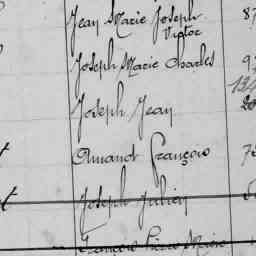 Jean Marie Joseph 87
Victor
Joseph Marie Charles
Joseph Jean
Armand François
Joseph Julien
François Pierre Marie